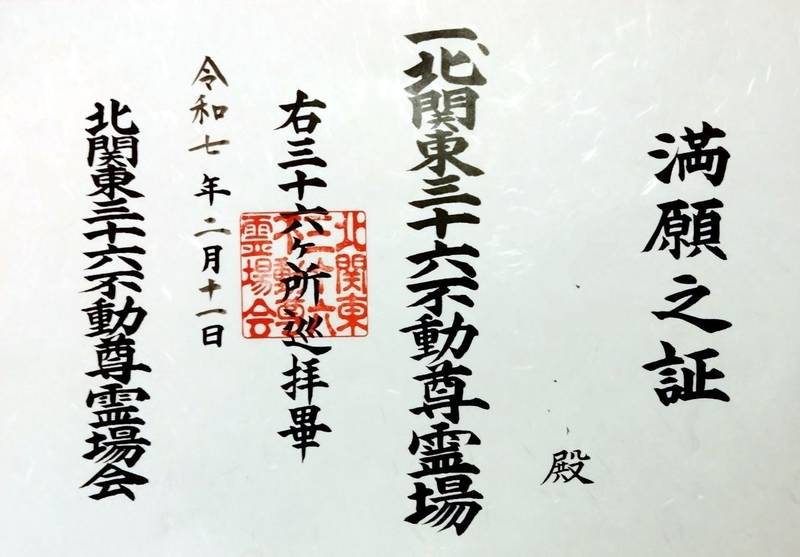 満願之証
殿
一、北関東三十六不動尊霊場
右三十六ヶ所巡拝畢
北関東
三十六
不動尊
霊場会
令和七年二月十一日
北関東三十六不動尊霊場会